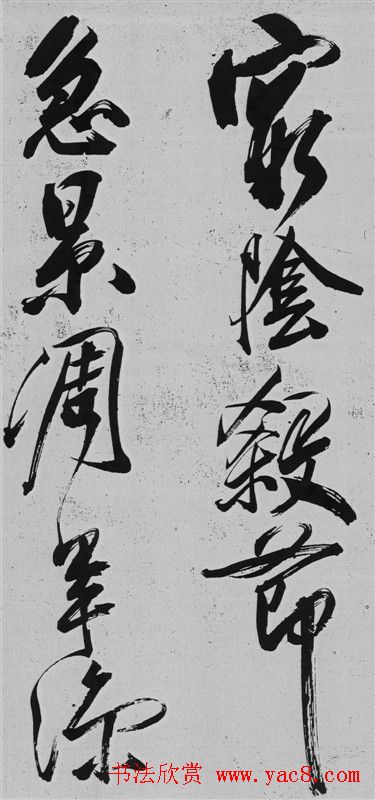 窮陰殺節
急景凋年涼
书法欣赏 www.yac8.com